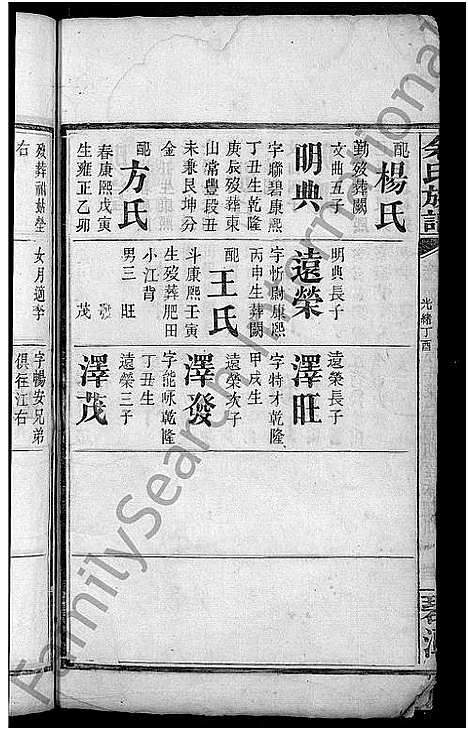 余氏族譜
光緒丁酉
配楊氏
勤歿葬闕
文曲五子
明典
字聯碧康熙
丁丑生乾隆
庚辰歿葬東
山常豊段丑
未兼艮坤分
金
配方氏
春康熙戊寅
生雍正乙卯
明典長子
遠榮
字忻尉康熙
丙申生葬闕
配王氏
斗康熙壬寅
生歿葬肥田
小江背
男三 旺
發
茂
遠榮長子
澤旺
字特才乾隆
甲戌生
遠榮次子
澤發
字能咏乾隆
丁丑生
遠榮三子
澤茂
歿葬祖姑塋
右
女月適李
字暢安兄弟
俱徃江右
FamilySearch International